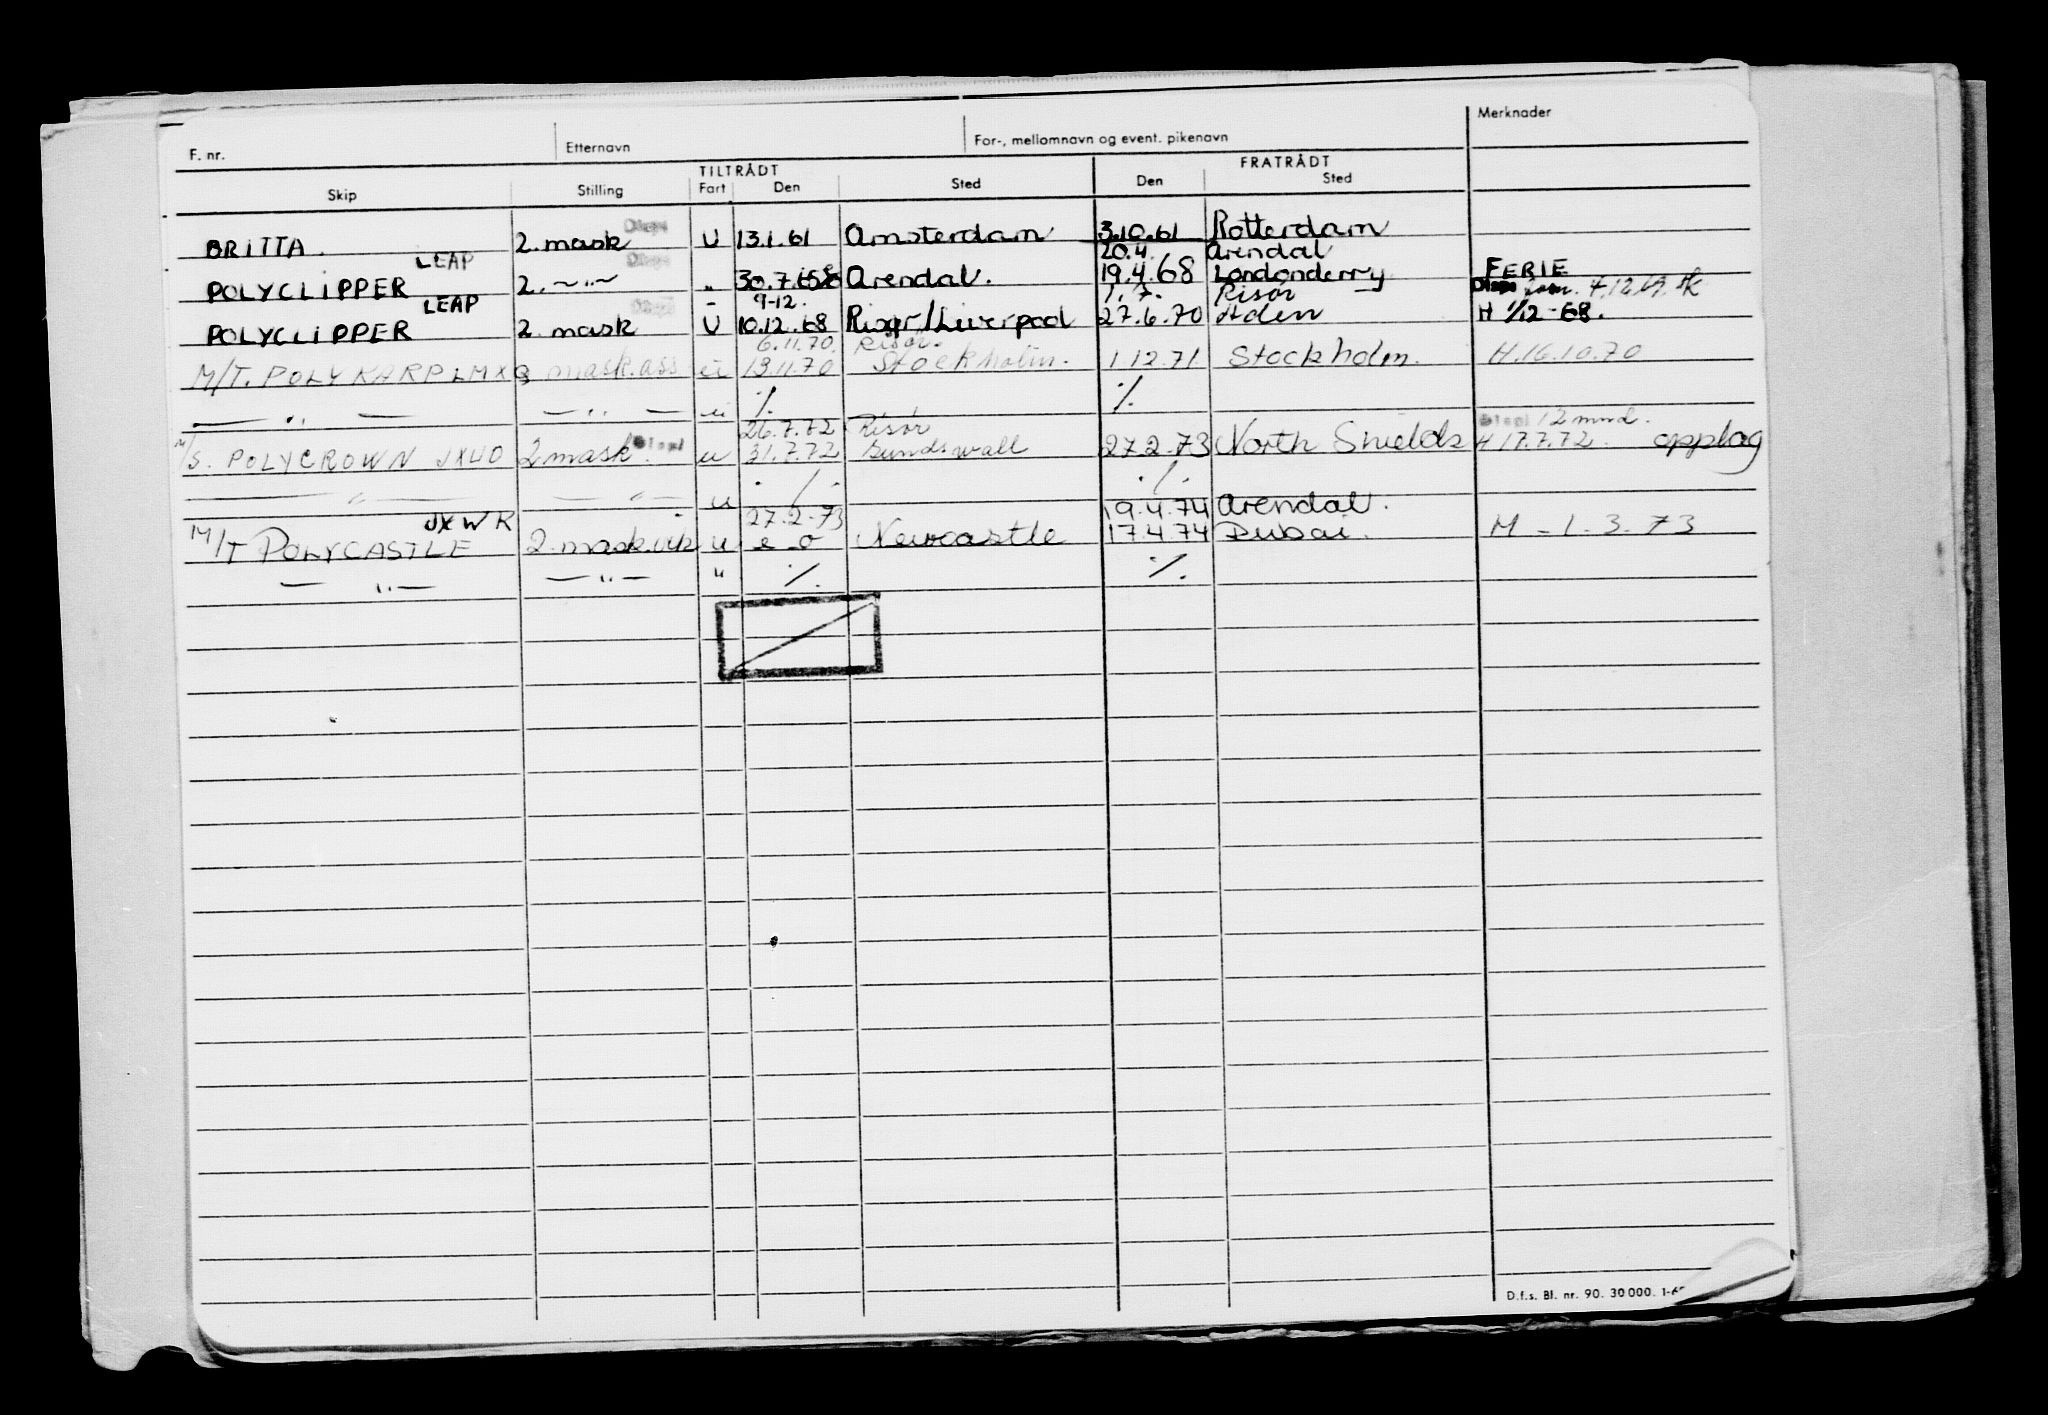 F. nr. Etternavn For-, mellomnavn og event. pikenavn Merknader
TILTRÅDT FRATRÅDT
Skip Stilling Fart Den Sted Den Sted
BRITTA. 2. mask Disps U 13.1.61 Amsterdam 3.10.61 Rotterdam
LEAP Disps 20.4. Arendal
POLYCLIPPER 2. —"— " 30.7. Arendal. 19.4.68 Londonderry FERIE
LEAP Disps - 9-12. 1.7. Risør Disps 4.12.69.
POLYCLIPPER 2. mask U 10.12.68 Risør/Liverpool 27.6.70 Aden H 1/12-68.
6.11.70. Risør.
M/T. POLYKARP LMXQ mask.ass u 13.11.70 Stockholm. 1 12.71 Stockholm. H.16.10.70
— " — — " — u ./. ./.
26.7.72 Risør 12 mnd.
M/S. POLYCROWN JXUO 2 mask. u 31.7.72 Sundswall 27.2.73 North Shields H 17.7.72. opplag
— " — — " — u ./. ./.
JXWR 27.2.73 19.4.74 Arendal.
M/T POLYCASTLE 2. mask.vik u e o Newcastle 17.4.74 Dubai. M - 1. 3. 73
— " — — " — " ./. ./.
D.f.s. Bl. nr. 90. 30 000.